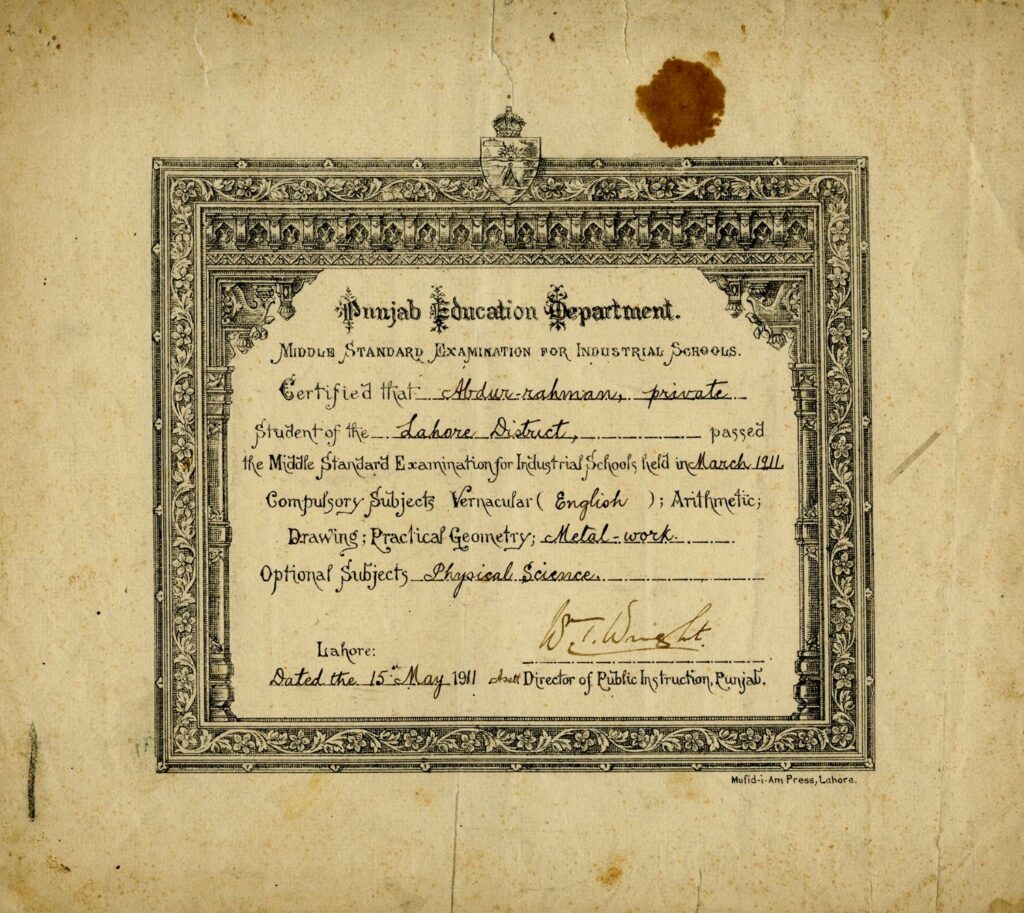 Punjab Education Department.
Middle Standard Examination for Industrial Schools.
Certified that Abdur-rahman, private
Student of the Lahore District, passed
the Middle Standard Examination for Industrial Schools held in March 1911
Compulsory Subjects Vernacular ( English ); Arithmetic;
Drawing; Practical Geometry; Metal-work.
Optional Subjects Physical Science.
Wm. T. Wright.
Lahore:
Dated the 15th May 1911 Asstt Director of Public Instruction, Punjab.
Mufid-i-Am Press, Lahore.